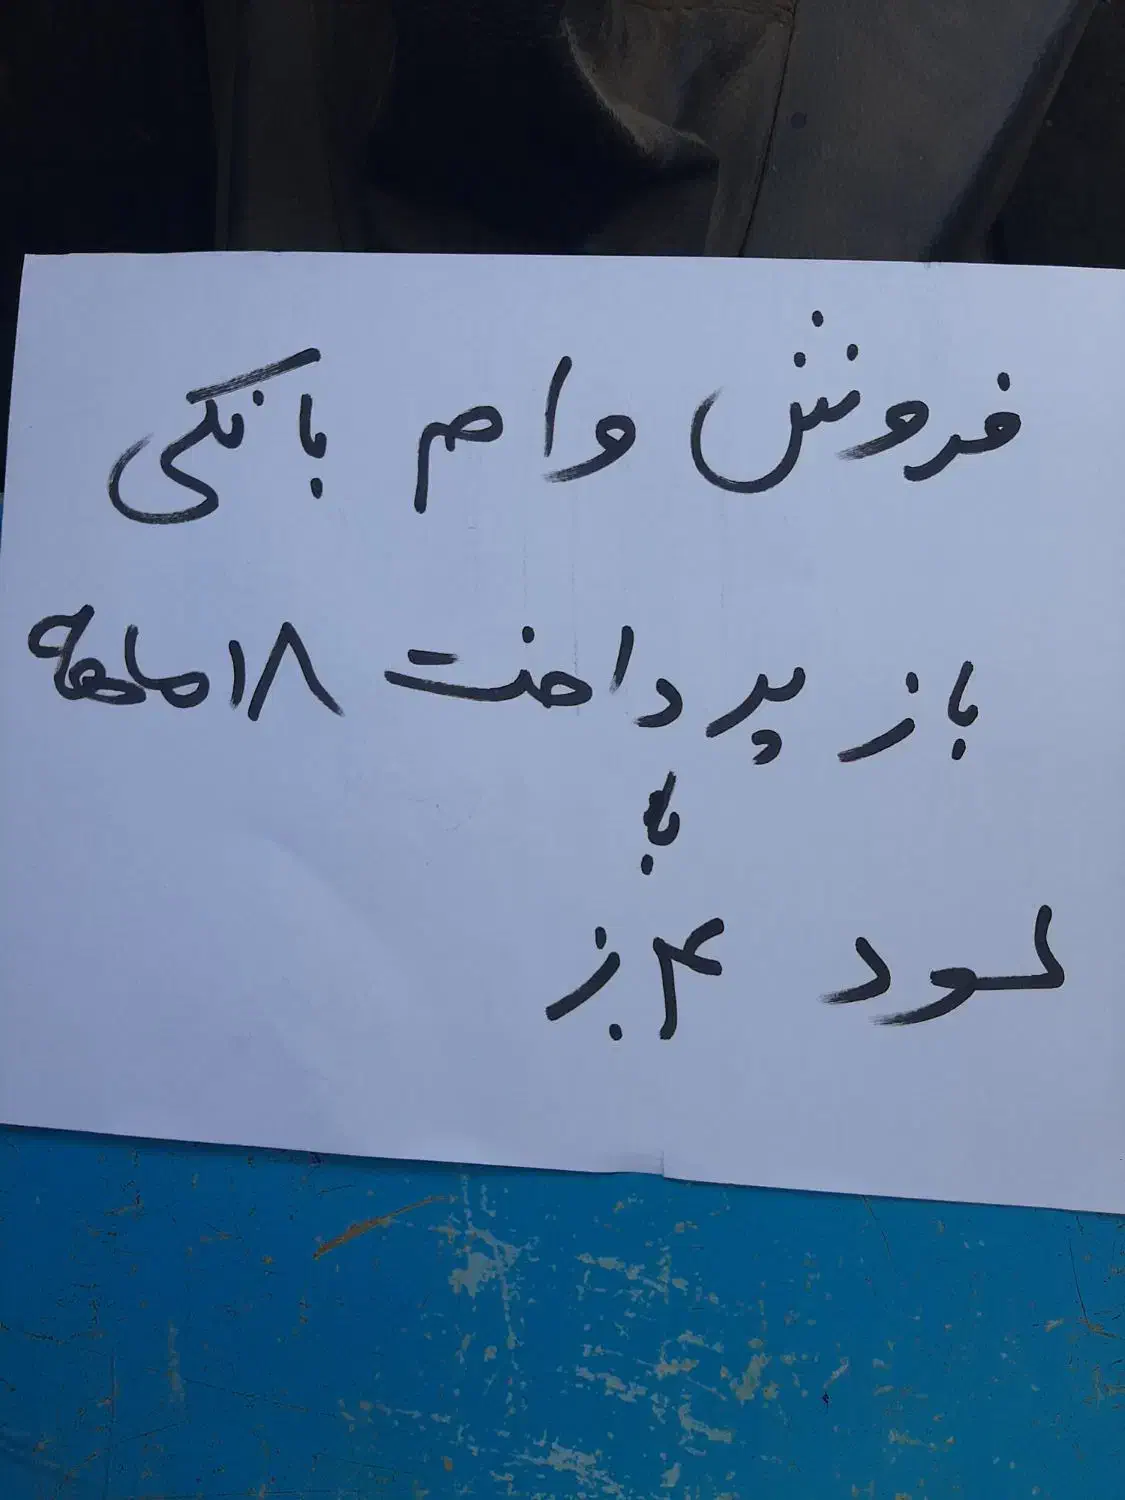 فروش وام بانکی
باز پرداخت ۱۸ ماهه
با
سود ۴.ز